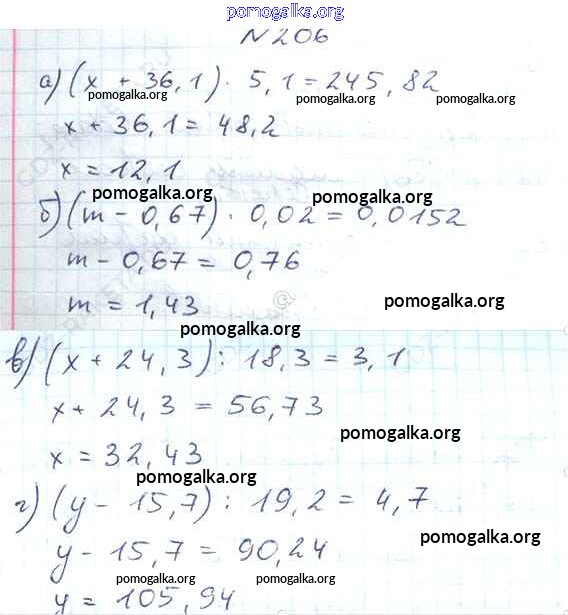 pomogalka.org
№206
а) (x + 36,1) · 5,1 = 245,82
pomogalka.org pomogalka.org pomogalka.org
x + 36,1 = 48,2
x = 12,1
pomogalka.org pomogalka.org
б) (m - 0,67) · 0,02 = 0,0152
m - 0,67 = 0,76
m = 1,43
pomogalka.org
pomogalka.org
в) (x + 24,3) : 18,3 = 3,1
x + 24,3 = 56,73
pomogalka.org
x = 32,43
pomogalka.org
г) (y - 15,7) : 19,2 = 4,7
pomogalka.org
y - 15,7 = 90,24
pomogalka.org pomogalka.org
y = 105,94